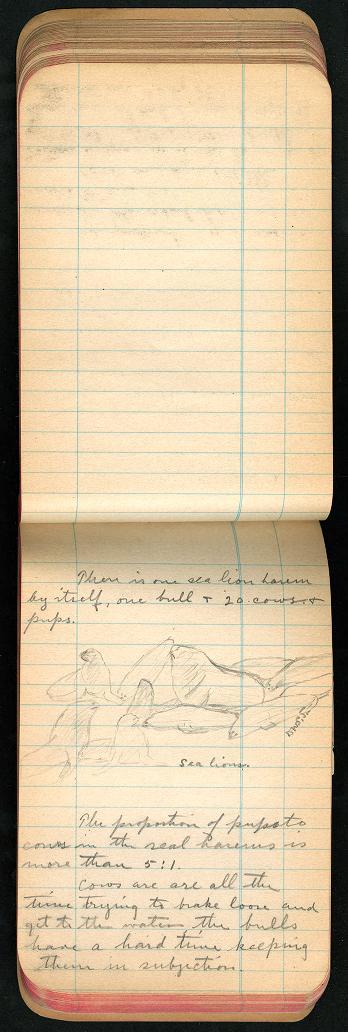 There is one sea lion harem
by itself, one bull + 20 cows +
pups.
Sea lions.
The proportion of pups to
cows in the seal harems is
more than 5:1.
Cows are are all the
time trying to brake loose and
get to the water the bulls
have a hard time keeping
them in subjection.